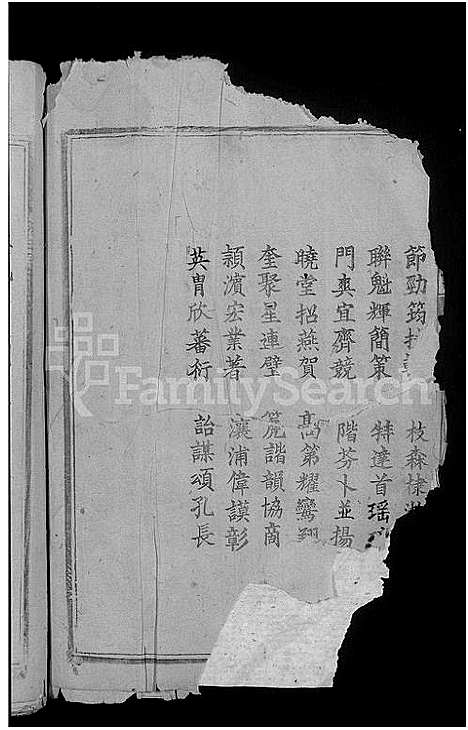 節勁筠 枝森棣
聯魁輝簡策 特達首瑶
門爽宜齊競 階芬卜並揚
曉堂招燕賀 高第耀鸞翔
奎聚星連璧 篪諧韻協商
潁濱宏業著 瀼浦偉謨彰
英胄欣蕃衍 詒謀頌孔長
FamilySearch